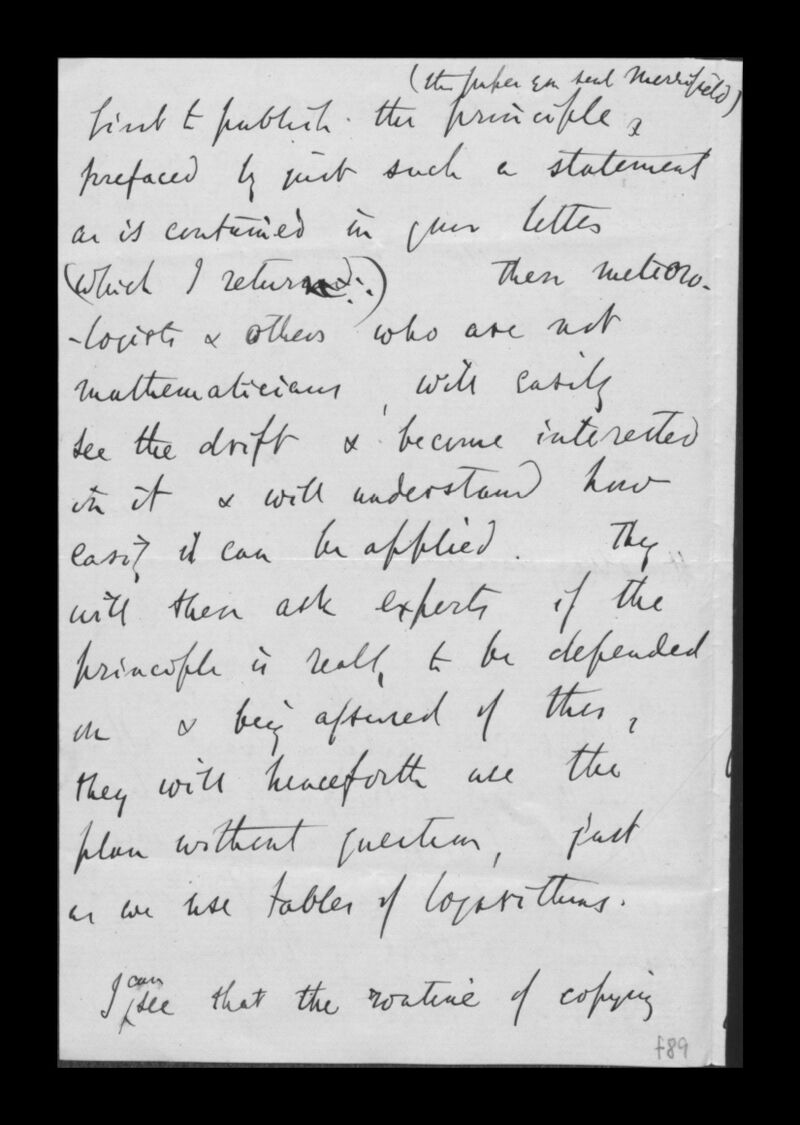 (the paper you sent Merrifield)
first to publish the principle,
prefaced by just such a statement
as is contained in your letter
(which I return.) Then meteoro-
-logists & others who are not
mathematicians, will easily
see the drift & become interested
in it & will understand how
easily it can be applied. They
will then ask experts if the
principle is really to be depended
on & being assured of this,
they will henceforth use the
plan without question, just
as we use tables of logarithms.
I can see that the routine of copying
f89